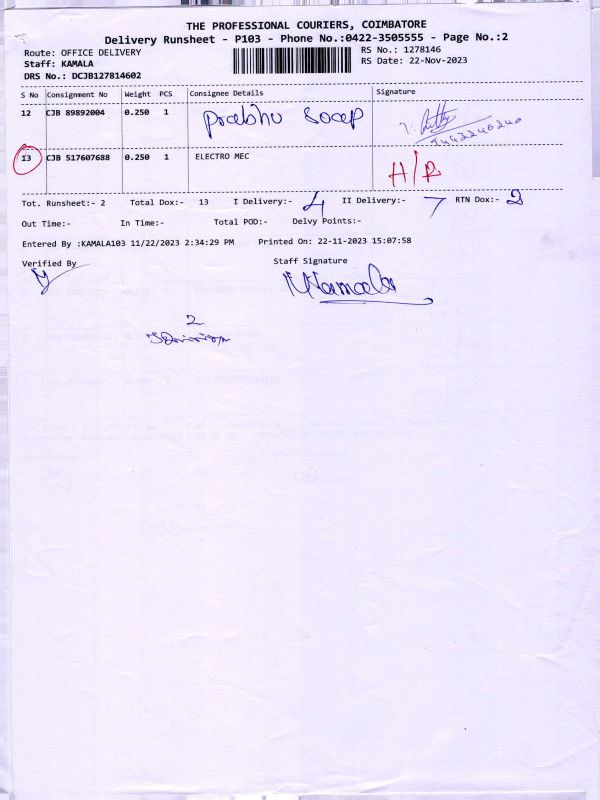 THE PROFESSIONAL COURIERS, COIMBATORE
Delivery Runsheet - P103 - Phone No.:0422-3505555 - Page No.:2
Route: OFFICE DELIVERY RS No.: 1278146
Staff: KAMALA RS Date: 22-Nov-2023
DRS No.: DCJB127814602
S No Consignment No Weight PCS Consignee Details Signature
12 CJB 89892004 0.250 1 prabhu soap
9442246240
13 CJB 517607688 0.250 1 ELECTRO MEC H/R
Tot. Runsheet:- 2 Total Dox:- 13 I Delivery:- 4 II Delivery:- 7 RTN Dox:- 2
Out Time:- In Time:- Total POD:- Delvy Points:-
Entered By :KAMALA103 11/22/2023 2:34:29 PM Printed On: 22-11-2023 15:07:58
Verified By Staff Signature
Kamala
2